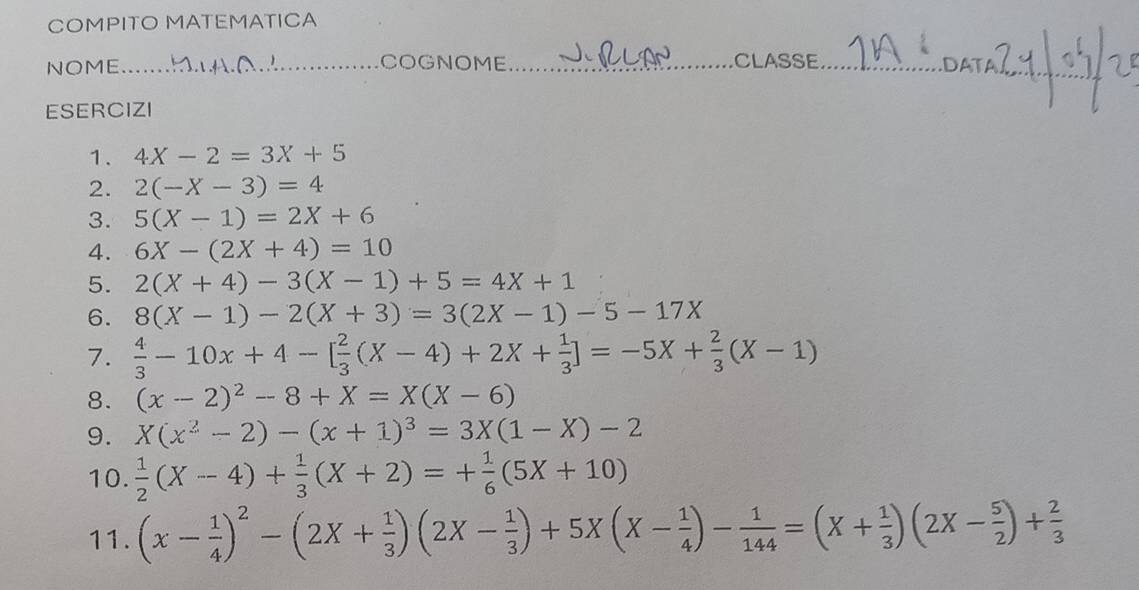 COMPITO MATEMATICA
NOME.......M.I.H.A.!...............COGNOME...............CLASSE.....1A.........DATA
ESERCIZI
1. 4X − 2 = 3X + 5
2. 2(−X − 3) = 4
3. 5(X − 1) = 2X + 6
4. 6X − (2X + 4) = 10
5. 2(X + 4) − 3(X − 1) + 5 = 4X + 1
6. 8(X − 1) − 2(X + 3) = 3(2X − 1) − 5 − 17X
7. 4/3 − 10x + 4 − [2/3 (X − 4) + 2X + 1/3] = −5X + 2/3 (X − 1)
8. (x − 2)² − 8 + X = X(X − 6)
9. X(x² − 2) − (x + 1)³ = 3X(1 − X) − 2
10. 1/2 (X − 4) + 1/3 (X + 2) = + 1/6 (5X + 10)
11. (x − 1/4)² − (2X + 1/3)(2X − 1/3) + 5X(X − 1/4) − 1/144 = (X + 1/3)(2X − 5/2) + 2/3